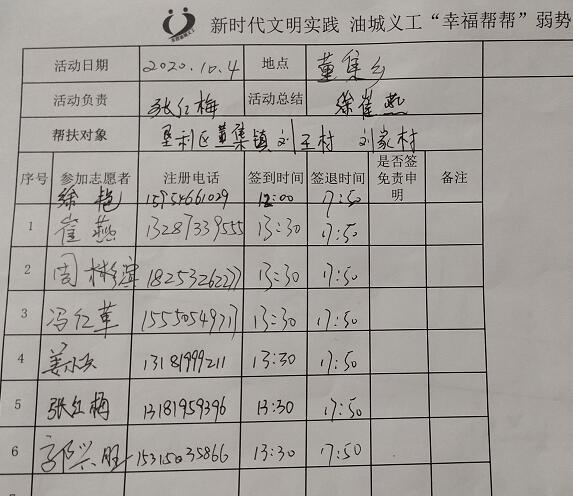 新时代文明实践 油城义工“幸福帮帮”弱势
活动日期 2020.10.4 地点 董集乡
活动负责 张红梅 活动总结 徐崔燕
帮扶对象 垦利区董集镇刘王村 刘家村
序号 参加志愿者 注册电话 签到时间 签退时间 是否签免责申明 备注
徐艳 15954661029 12:00 17:50
1 崔燕 13287339555 13:30 17:50
2 周林滨 18253262277 13:30 17:50
3 冯红革 13:30 17:50
4 姜小玉 13181999211 13:30 17:50
5 张红梅 13181959396 13:30 17:50
6 郭兴旺 15315035866 13:30 17:50